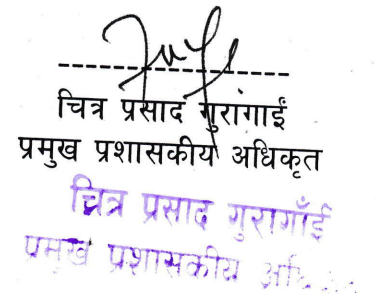 चित्र प्रसाद गुरांगाईं
प्रमुख प्रशासकीय अधिकृत
चित्र प्रसाद गुरागाँई
प्रमुख प्रशासकीय